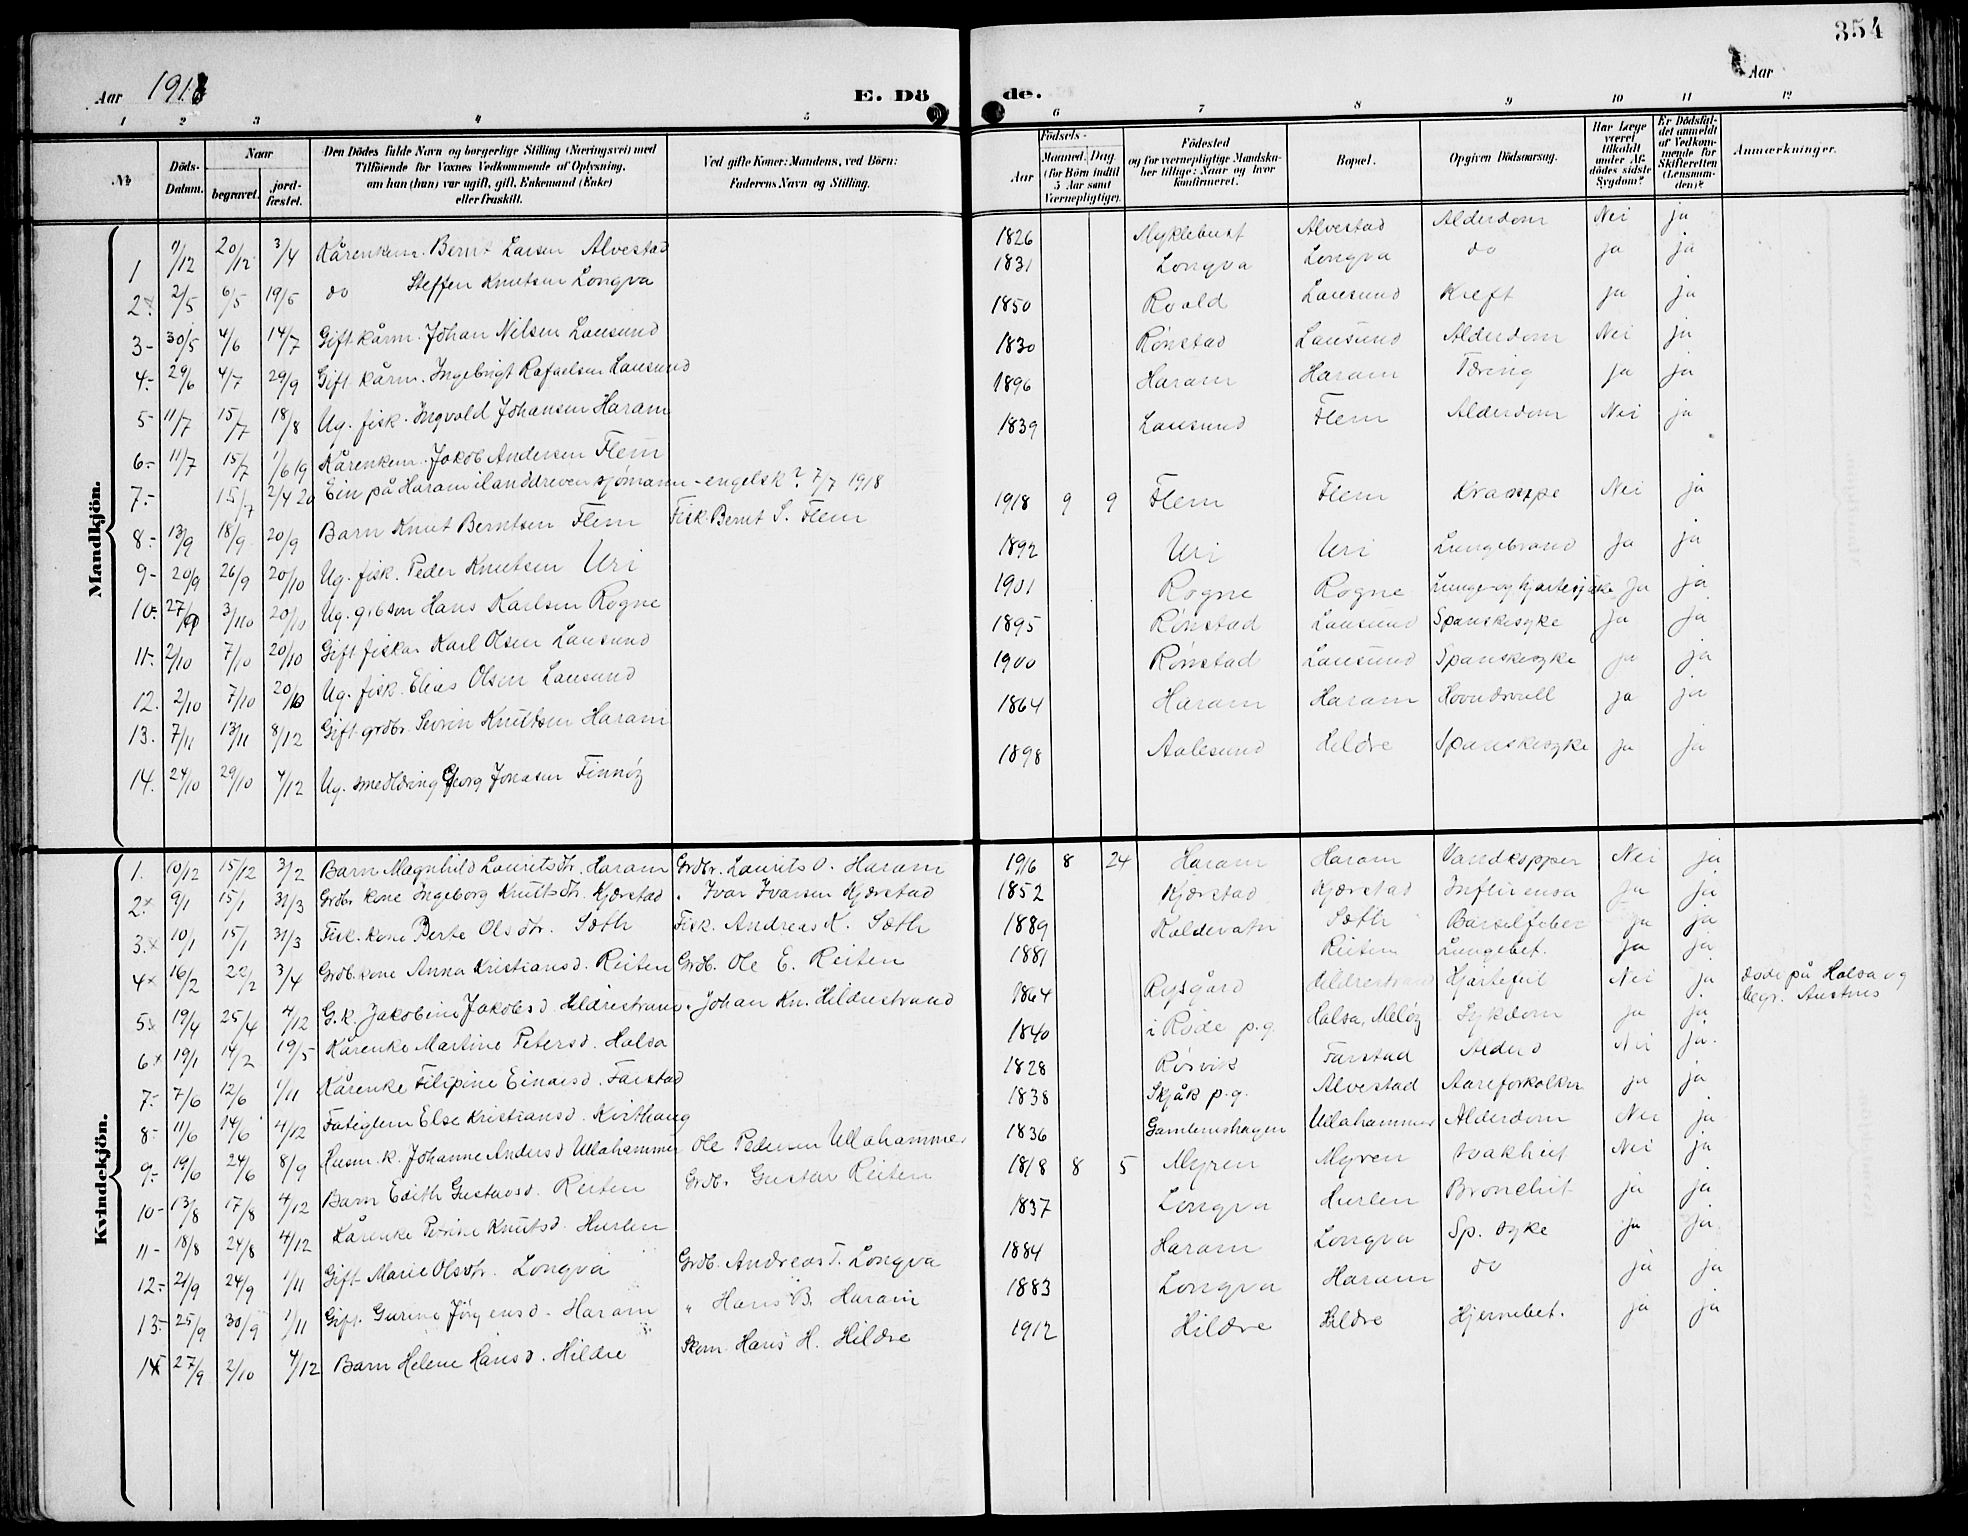 354
Aar 1918 E. Döde. Aar
1 2 3 4 5 6 7 8 9 10 11 12
№ Döds-Datum. Naar begravet. jordfæstet. Den Dödes fulde Navn og borgerlige Stilling (Næringsvei) med Tilföiende for Voxnes Vedkommende af Oplysning, om han (hun) var ugift, gift, Enkemand (Enke) eller fraskilt. Ved gifte Koner: Mandens, ved Börn: Faderens Navn og Stilling. Födsels- Aar Maaned. Dag. (for Börn indtil 5 Aar samt Værnepligtige). Födested og for værnepligtige Mandskaber tillige: Naar og hvor konfirmeret. Bopæl. Opgiven Dödsaarsag. Har Læge været tilkaldt under Afdödes sidste Sygdom? Er Dödsfaldet anmeldt af Vedkommende for Skifteretten (Lensmanden)? Anmærkninger.
Mandkjön.
1 /12 20/12 3/4 Kårenkem. Bernt Larsen Alvestad 1826 Myklebust Alvestad Alderdom Nei ja
2 2/5 6/5 19/5 do Steffen Knutsen Longva 1831 Longva Longva do ja ja
3- 30/5 4/6 14/7 Gift kårm. Johan Nilsen Lausund 1850 Roald Lausund Kreft ja ja
4- 29/6 4/7 29/9 Gift kårm. Ingebrigt Rafaelsen Lausund 1830 Rønstad Lausund Alderdom Nei ja
5- 11/7 15/7 18/8 Ug. fisk. Ingvald Johansen Haram 1896 Haram Haram Tæring ja ja
6- 11/7 15/7 1/6 19 Kårenkem. Jakob Andersen Flem 1839 Lausund Flem Alderdom Nei ja
7- 15/7 2/4 20 Ein på Haram ilanddreven sjømann - engelsk? 7/7 1918
8- 13/9 18/9 20/9 Barn Knut Berntsen Flem Fisk. Bernt S. Flem 1918 9 9 Flem Flem Krampe Nei ja
9- 20/9 26/9 20/10 Ug. fisk. Peder Knutsen Uri 1892 Uri Uri Lungebrand ja ja
10- 27/9 3/10 20/10 Ug. grbson Hans Karlsen Rogne 1901 Rogne Rogne Lunge- og hjartesyke Ja ja
11- 2/10 7/10 20/10 Gift fiskar Karl Olsen Lausund 1895 Rønstad Lausund Spanskesyke ja ja
12. 2/10 7/10 20/10 Ug. fisk. Elias Olsen Lausund 1900 Rønstad Lausund Spanskesyke ja ja
13. 7/11 13/11 8/12 Gift grdbr. Sevrin Knutsen Haram 1864 Haram Haram ja ja
14. 24/10 29/10 4/12 Ug. smedlæring Georg Jonasen Finnöy 1898 Aalesund Hildre Spanskesyke ja ja
Kvindekjön.
1. 10/12 15/12 3/2 Barn Magnhild Lauritsdtr. Haram Grdbr. Laurits O. Haram 1916 8 24 Haram Haram Vandkopper Nei ja
2. 9/1 15/1 31/3 Grdbr kone Ingeborg Knutsdtr. Kjerstad " Ivar Ivarsen Kjerstad 1852 Kjerstad Kjerstad Influensa ja ja
3. 10/1 15/1 31/3 Fisk. kone Berte Olsdtr. Sæth Fisk. Andreas K. Sæth 1889 Kaldevatn Sæth Barselfeber ja ja
4x 16/2 22/2 3/4 Grdb. kone Anna Kristiansd. Reiten Grdb. Ole E. Reiten 1881 Reiten Lungebet. ja ja
5x 19/4 25/4 4/12 G.k. Jakobine Jakobsd. Hildrestrand " Johan Kn. Hildrestrand 1864 Rysgård Hildrestrand Hjartefeil Nei ja
6x 19/1 14/2 19/5 Kårenke Martine Petersd. Halsa 1840 i Røde p.g. Halsa, Meløy Sykdom ja ja døde på Halsa og begr. Austnes
7- 7/6 12/6 1/11 Kårenke Filipine Einarsd. Farstad 1828 Rösvik Farstad Alderd Nei ja
8- 11/6 14/6 4/12 Fatiglem Else Kristiansd. Kvithaug 1838 Skjåk p.g. Alvestad Aareforkalkn ja ja
9- 19/6 24/6 8/9 Husm.k. Johanne Andersd Ullahammer Ole Pedersen Ullahammer 1836 Gamlemshaugen Ullahammer Alderdom Nei ja
10- 13/8 17/8 4/12 Barn Edith Gustavsd. Reiten Grdb. Gustav Reiten 1818 8 5 Myren Myren Svakhet Nei ja
11- 18/8 24/8 4/12 Kårenke Petrine Knutsd. Hurlen 1837 Longva Hurlen Bronchit ja ja
12- 21/9 24/9 1/11 Gift Marie Olsdtr. Longva Grdb. Andreas T. Longva 1884 Haram Longva Sp. syke ja ja
13- 25/9 30/9 1/11 Gift. Gurine Jörgensd. Haram " Hans B. Haram 1883 Longva Haram do ja ja
14 27/9 2/10 4/12 Barn Helene Hansd. Hildre Skom. Hans H. Hildre 1912 Hildre Hildre Hjernebet. ja ja